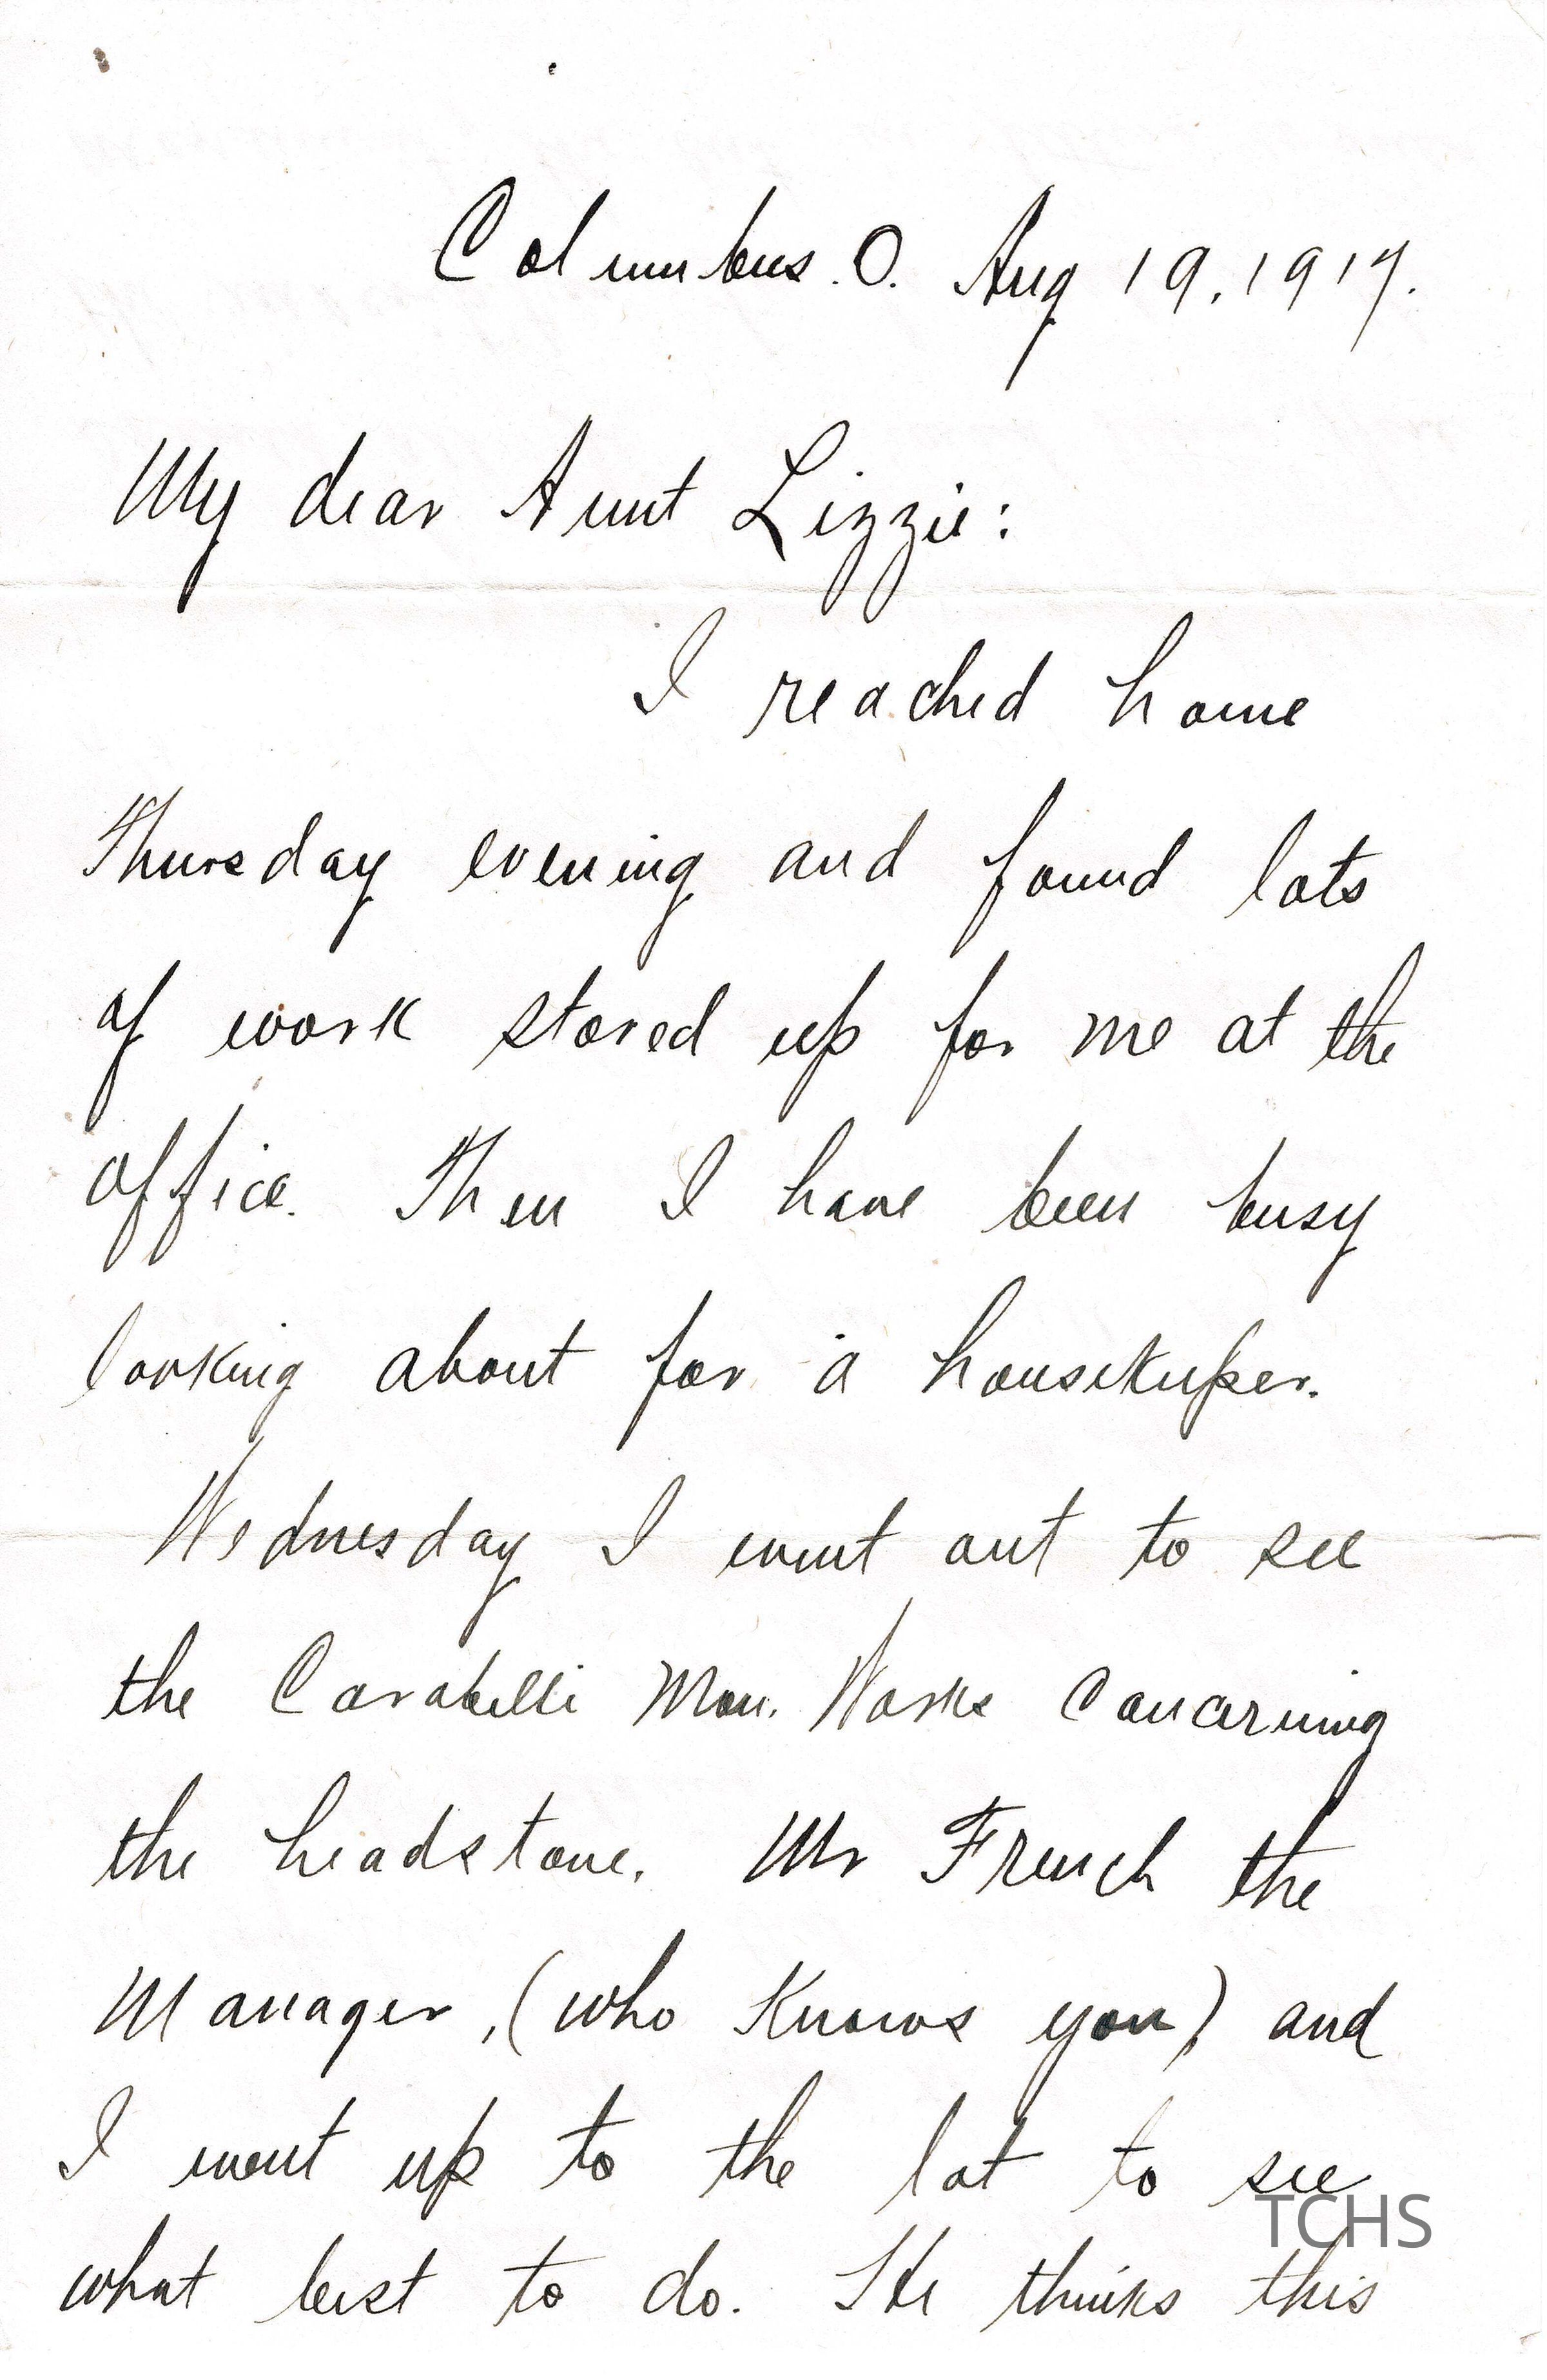 Columbus. O. Aug 19, 1917.
My dear Aunt Lizzie:
I reached home
Thursday evening and found lots
of work stored up for me at the
office. Then I have been busy
looking about for a housekeeper.
Wednesday I went out to see
the Carabelli Mon. Works Concerning
the headstone. Mr French the
Manager, (who knows you) and
I went up to the lot to see
TCHS
what best to do. He thinks this